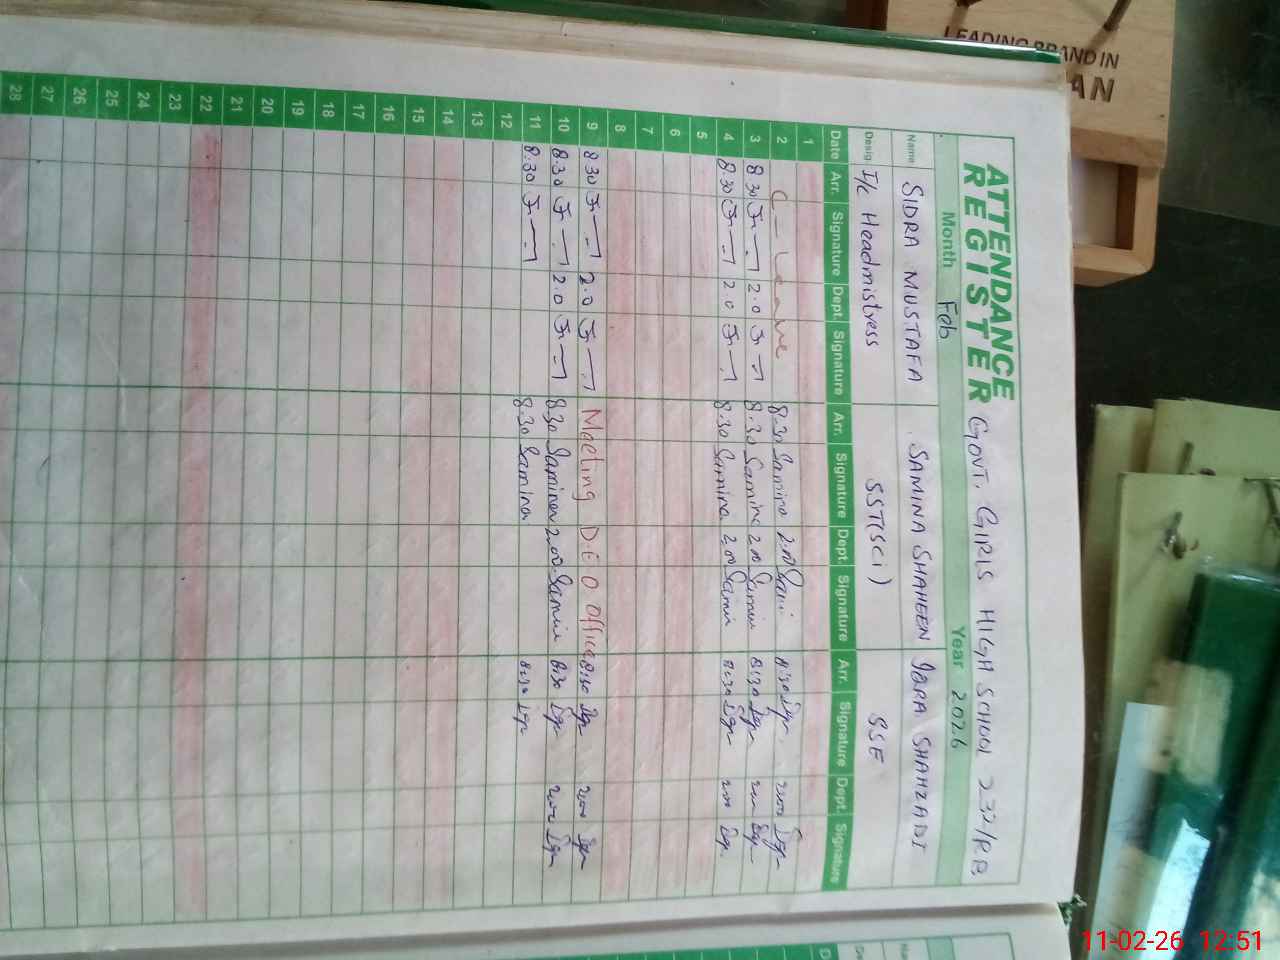 LEADING BRAND IN
AN
ATTENDANCE REGISTER
GOVT. GIRLS HIGH SCHOOL 232/RB
Month Feb Year 2026
Name SIDRA MUSTAFA SAMINA SHAHEEN IQRA SHAHZADI
Desig I/C Headmistress SST(SCI) SSE
Date Arr. Signature Dept. Signature Arr. Signature Dept. Signature Arr. Signature Dept. Signature
1
2 C-Leave 8.30 Samina 2.00 8:30 2:00
3 8.30 2.0 8.30 Samina 2.00 8:30 2:00
4 8.30 2.0 8.30 Samina 2.00 8:30 2:00
5
6
7
8
9 8.30 2.0 Meeting DEO Office 8:30 2:00
10 8.30 2.0 8.30 Samina 2.00 8:30 2:00
11 8.30 8.30 Samina 8:30
12
13
14
15
16
17
18
19
20
21
22
23
24
25
26
27
28
Name
Desig
D
11-02-26 12:51